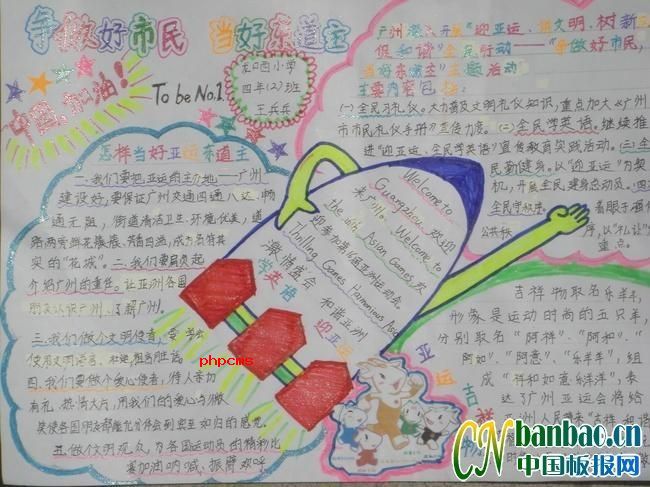 争做好市民 当好东道主
中国,加油!
To be No.1
四年(2)班
怎样当好亚运东道主
一、我们要把亚运的主办地——广州
建设好,要保证广州交通四通八达,畅
通无阻,街道清洁卫生,环境优美,道
路两旁鲜花
实的"花城"。二、我们要肩负起
介绍广州的重任。让亚洲各国
朋友认识广州、了解广州。
三、我们做个文明使者,要
使用文明语言。
四、我们要做个爱心使者,待人亲切
有礼,热情大方,用我们的爱心与
五、做个文明观众,为各国运动员的精彩比
赛加油呐喊、振臂欢呼
phpcms
Welcome to
Guangzhou,欢迎
来广州。Welcome to
the 16th Asian Games
迎参加第16届亚洲运动会。
Thrilling Games Harmonious Asia
激情盛会 和谐亚洲
学英语
迎亚运
"迎亚运、讲文明、树新
促和谐"全民行动——"争做好市民,
当好东道主"主题活动
主要内容包括:
(一)全民习礼仪。大力普及文明礼仪知识,重点加大《广州
市市民礼仪手册》宣传力度。(二)全民学英语。继续推
进"迎亚运、学英语"宣传教育实践活动。(三)全
民勤健身。以"迎亚运"为契
机,开展全民健身总动员。(四)
全民守秩序。着眼于强化
公共秩序,以"礼让"为
重点。
亚运
吉祥
吉祥物取名乐羊羊,
形象是运动时尚的五只羊,
分别取名"阿祥"、"阿和"、"
阿如"、"阿意"、"乐羊羊",组
成"祥和如意乐洋洋",表
达了广州亚运会将给
亚洲人民带来"吉祥、和谐
CN banbao.cn
中国板报网